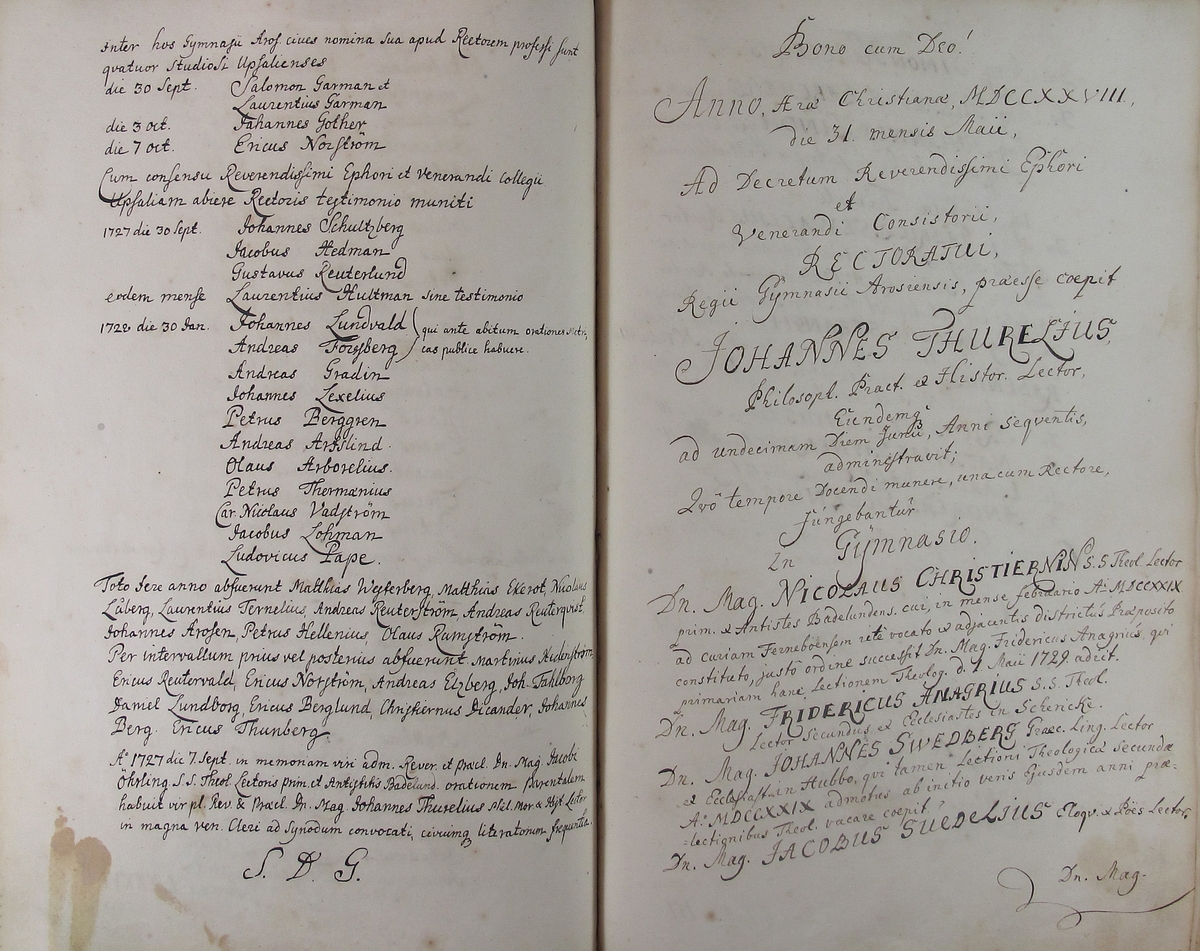 Inter hos Gymnasii Aros. cives nomina sua apud Rectorem professi sunt
qvatuor Studiosi Upsalienses
die 30 Sept. Salomon Garman et
Laurentius Garman
die 3 oct. Johannes Gother
die 7 oct. Ericus Norström
Cum consensu Reverendissimi Ephori et venerandi collegii
Upsaliam abiere Rectoris testimonio muniti
1727 die 30 Sept. Johannes Schultzberg
Jacobus Hedman
Gustavus Reuterlund
eodem mense Laurentius Hultman sine testimonio
1728 die 30 Jan. Johannes Lundvald qui ante abitum orationes
Andreas Forssberg cas publice habuere.
Andreas Gradin
Johannes Lexelius
Petrus Berggren
Andreas
Olaus Arborelius.
Petrus Thermænius
Car. Nicolaus Vadström
Jacobus Lohman
Ludovicus Pape.
Toto fere anno abfuerunt Matthias Westerberg, Matthias Ekerot, Nicolaus
Låberg, Laurentius Ternelius, Andreas Reuterström, Andreas Reuterqvist,
Johannes Arosen, Petrus Hellenius, Olaus Rumström.
Per intervallum prius vel posterius abfuerunt. Martinus Hedenström,
Ericus Reutervald, Ericus Norström, Andreas Elzberg, Joh. Fahlborg
Daniel Lundborg, Ericus Berglund, Christiernus Dicander, Johannes
Berg. Ericus Thunberg.
Aº 1727 die 7 Sept. in memoriam viri adm. Rever. et præcl. Dn. Mag. Jacobi
Öhrling S.S. Theol Lectoris prim. et Antistitis Badelund. orationem parentalem
habuit vir pl. Rev. & Præcl. Dn. Mag. Johannes Thurelius Phil. Mor. & Hist Lector
in magna ven. Cleri ad Synodum convocati, civiumq literatorum frequentia.
S. D. G.
Bono cum Deo!
Anno, Æræ Christianæ, MDCCXXVIII,
die 31. mensis Maii,
Ad Decretum Reverendissimi Ephori
et
Venerandi Consistorii,
RECTORATUI,
Regii Gymnasii Arosiensis, præesse coepit
JOHANNES THURELIUS,
Philosoph. Pract. et Histor. Lector,
Eundemq
ad undecimam Diem Junii, Anni Seqventis,
administravit;
Qvô tempore Docendi munere, una cum Rectore,
fungebantur
In Gymnasio.
Dn. Mag. NICOLAUS CHRISTIERNIN S.S Theol. Lector
prim. & Antistes Badelundens. cui, in mense februario Aº MDCCXXIX
ad curiam Ferneboensem rite vocato & adjacentis districtus Præposito
constituto, justo ordine successit Dn. Mag. Fridericus Anagrius, qui
primariam hanc Lectionem Theolog. d. 1 Maii 1729 adiit.
Dn. Mag. FRIDERICUS ANAGRIUS S.S. Theol.
Lector Secundus et Ecclesiastes in Schericke.
Dn. Mag. JOHANNES SWEDBERG Græc. Ling. Lector
et Ecclesiast. in Hubbo, qui tamen Lectioni Theologicæ secundæ
Aº MDCCXXIX admotus ab initio veris Ejusdem anni præ-
-lectionibus Theol. vacare coepit.
Dn. Mag. JACOBUS SUEDELIUS Eloqv. & Poës Lector
Dn. Mag.